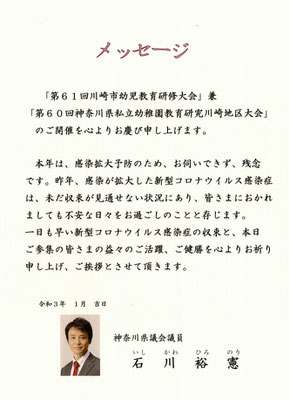 メッセージ
「第61回川崎市幼児教育研修大会」兼
「第60回神奈川県私立幼稚園教育研究川崎地区大会」
のご開催を心よりお慶び申し上げます。
本年は、感染拡大予防のため、お伺いできず、残念
です。昨年、感染が拡大した新型コロナウイルス感染症
は、未だ収束が見通せない状況にあり、皆さまにおかれ
ましても不安な日々をお過ごしのことと存じます。
一日も早い新型コロナウイルス感染症の収束と、本日
ご参集の皆さまの益々のご活躍、ご健勝を心よりお祈り
申し上げ、ご挨拶とさせて頂きます。
令和3年 1月 吉日
神奈川県議会議員
いし かわ ひろ のり
石川裕憲